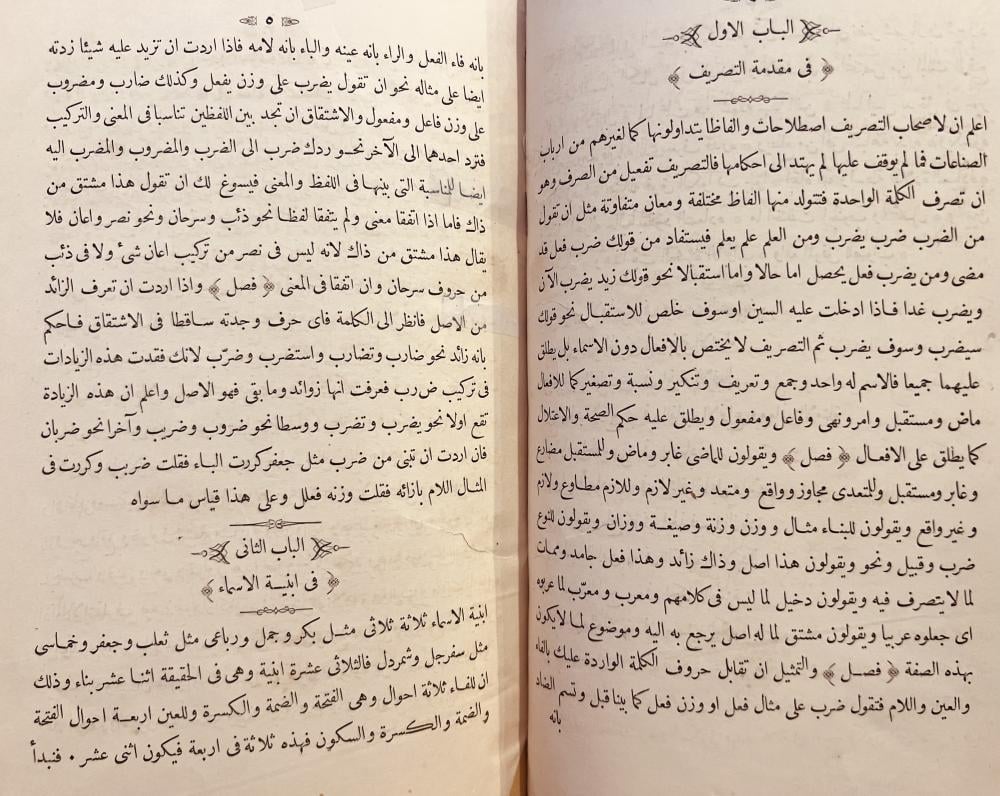 الباب الاول
﴿ فى مقدمة التصريف ﴾
اعلم ان لاصحاب التصريف اصطلاحات والفاظا يتداولونها كما لغيرهم من ارباب
الصناعات فما لم يوقف عليها لم يهتد الى احكامها فالتصريف تفعيل من الصرف وهو
ان تصرف الكلمة الواحدة فتتولد منها الفاظ مختلفة ومعان متفاوتة مثل ان تقول
من الضرب ضرب يضرب ومن العلم علم يعلم فيستفاد من قولك ضرب فعل قد
مضى ومن يضرب فعل يحصل اما حالا واما استقبالا نحو قولك زيد يضرب الآن
ويضرب غدا فاذا ادخلت عليه السين او سوف خلص للاستقبال نحو قولك
سيضرب وسوف يضرب ثم التصريف لا يختص بالافعال دون الاسماء بل يطلق
عليهما جميعا فالاسم له واحد وجمع وتعريف وتنكير ونسبة وتصغير كما للافعال
ماض ومستقبل وامر ونهى وفاعل ومفعول ويطلق عليه حكم الصحة والاعتلال
كما يطلق على الافعال ﴿ فصل ﴾ ويقولون للماضى غابر وماض وللمستقبل مضارع
وغابر ومستقبل وللمتعدى مجاوز وواقع ومتعد وغير لازم وللازم مطاوع ولازم
وغير واقع ويقولون للبناء مثال ووزن وزنة وصيغة ووزان ويقولون للنوع
ضرب وقبيل ونحو ويقولون هذا اصل وذاك زائد وهذا فعل جامد وممات
لما لا يتصرف فيه ويقولون دخيل لما ليس فى كلامهم ومعرب ومعرّب لما عربوه
اى جعلوه عربيا ويقولون مشتق لما له اصل يرجع به اليه وموضوع لما لا يكون
بهذه الصفة ﴿ فصل ﴾ والتمثيل ان تقابل حروف الكلمة الواردة عليك بالفاء
والعين واللام فتقول ضرب على مثال فعل او وزن فعل كما بينا قبل وتسم الضاد
بانه
٥
بانه فاء الفعل والراء بانه عينه والباء بانه لامه فاذا اردت ان تزيد عليه شيئا زدته
ايضا على مثاله نحو ان تقول يضرب على وزن يفعل وكذلك ضارب ومضروب
على وزن فاعل ومفعول والاشتقاق ان تجد بين اللفظين تناسبا فى المعنى والتركيب
فترد احدهما الى الآخر نحو ردك ضرب الى الضرب والمضروب والمضرب اليه
ايضا للمناسبة التى بينها فى اللفظ والمعنى فيسوغ لك ان تقول هذا مشتق من
ذاك فاما اذا اتفقا معنى ولم يتفقا لفظا نحو ذئب وسرحان ونحو نصر واعان فلا
يقال هذا مشتق من ذاك لانه ليس فى نصر من تركيب اعان شئ ولا فى ذئب
من حروف سرحان وان اتفقا فى المعنى ﴿ فصل ﴾ واذا اردت ان تعرف الزائد
من الاصل فانظر الى الكلمة فاى حرف وجدته ساقطا فى الاشتقاق فاحكم
بانه زائد نحو ضارب وتضارب واستضرب وضرّب لانك فقدت هذه الزيادات
فى تركيب ض ر ب فعرفت انها زوائد وما بقى فهو الاصل واعلم ان هذه الزيادة
تقع اولا نحو يضرب وتضرب ووسطا نحو ضروب وضريب وآخرا نحو ضربان
فان اردت ان تبنى من ضرب مثل جعفر كررت الباء فقلت ضربب وكررت فى
المثال اللام بازائه فقلت وزنه فعلل وعلى هذا قياس ما سواه
الباب الثانى
﴿ فى ابنية الاسماء ﴾
ابنية الاسماء ثلاثة ثلاثى مثل بكر وجمل ورباعى مثل ثعلب وجعفر وخماسى
مثل سفرجل وشمردل فالثلاثى عشرة ابنية وهى فى الحقيقة اثنا عشر بناء وذلك
ان للفاء ثلاثة احوال وهى الفتحة والضمة والكسرة وللعين اربعة احوال الفتحة
والضمة والكسرة والسكون فهذه ثلاثة فى اربعة فيكون اثنى عشر ٠ فنبدأ